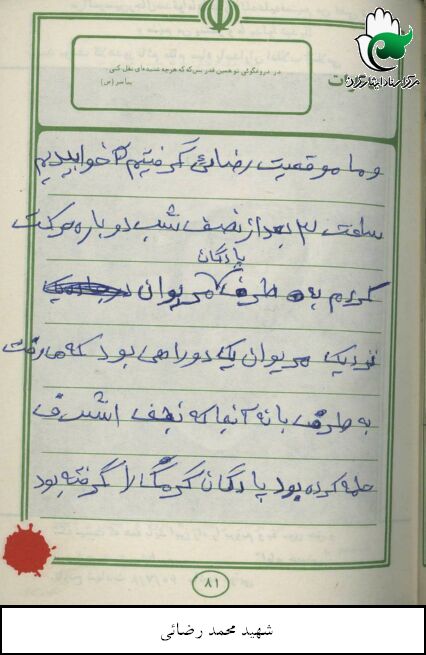 مرکز اسناد ایثارگران
در دروغگوئی تو همین قدر بس که که هرچه شنیده‌ای نقل کنی
پیامبر (ص)
و ما موقعیت رضائی گرفتیم که خوابیدیم
ساعت ۳ بعد از نصف شب دوباره حرکت
پادگان
کردم به طرف مریوان
نزدیک مریوان یک دوراهی بود که می‌رفت
به طرف بانه آنجا که نجف اشرف
حمله کرده بود پادگان گرمک را گرفته بود
۸۱
شهید محمد رضائی